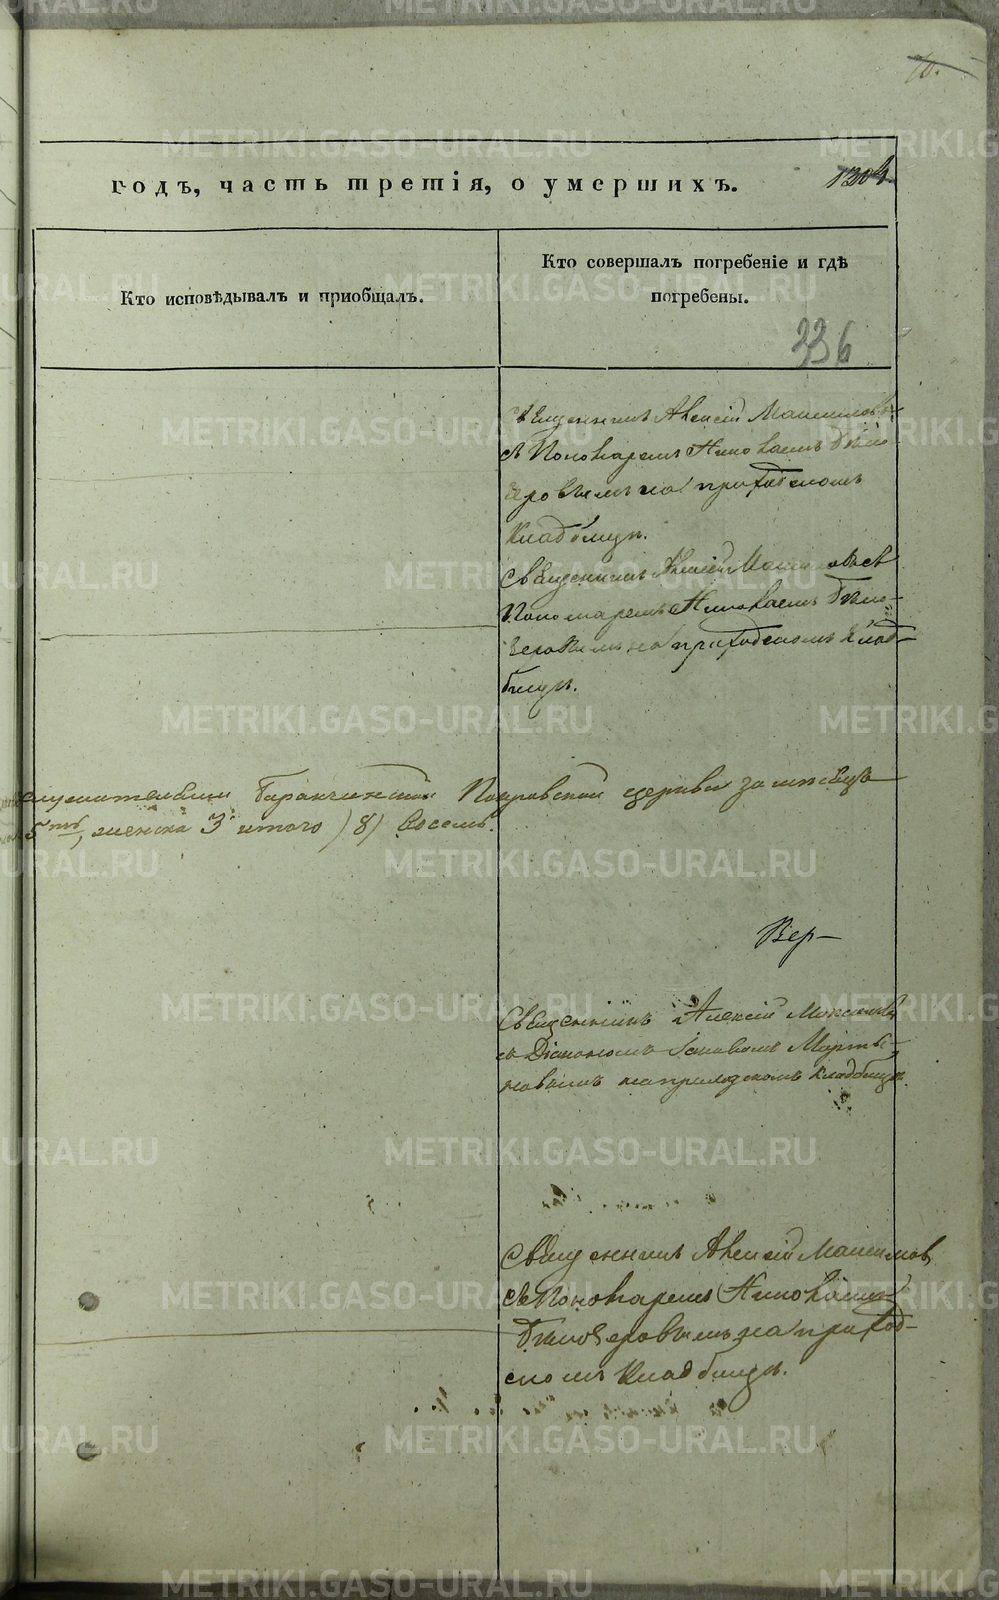 METRIKI.GASO-URAL.RU
годъ, часть третія, о умершихъ.
Кто исповѣдывалъ и пріобщалъ.
Кто совершалъ погребеніе и гдѣ
погребены.
336
Священникъ Алексій Максимовъ
съ Пономаремъ Николаемъ Бѣло
зеровымъ на приходскомъ
кладбищѣ.
Священникъ Алексій Максимовъ съ
Пономаремъ Николаемъ Бѣло-
зеровымъ на приходскомъ клад-
бищѣ.
служителями Баранчинской Покровской церкви за мѣсяцъ
5ть, женска 3 итого (8) восемь.
Вер-
Священникъ Алексій Максимовъ
съ Діакономъ Іаковомъ Марты-
новымъ на приходскомъ кладбищѣ.
Священникъ Алексій Максимовъ
съ Пономаремъ Николаемъ
Бѣлозеровымъ на приход-
скомъ кладбищѣ.